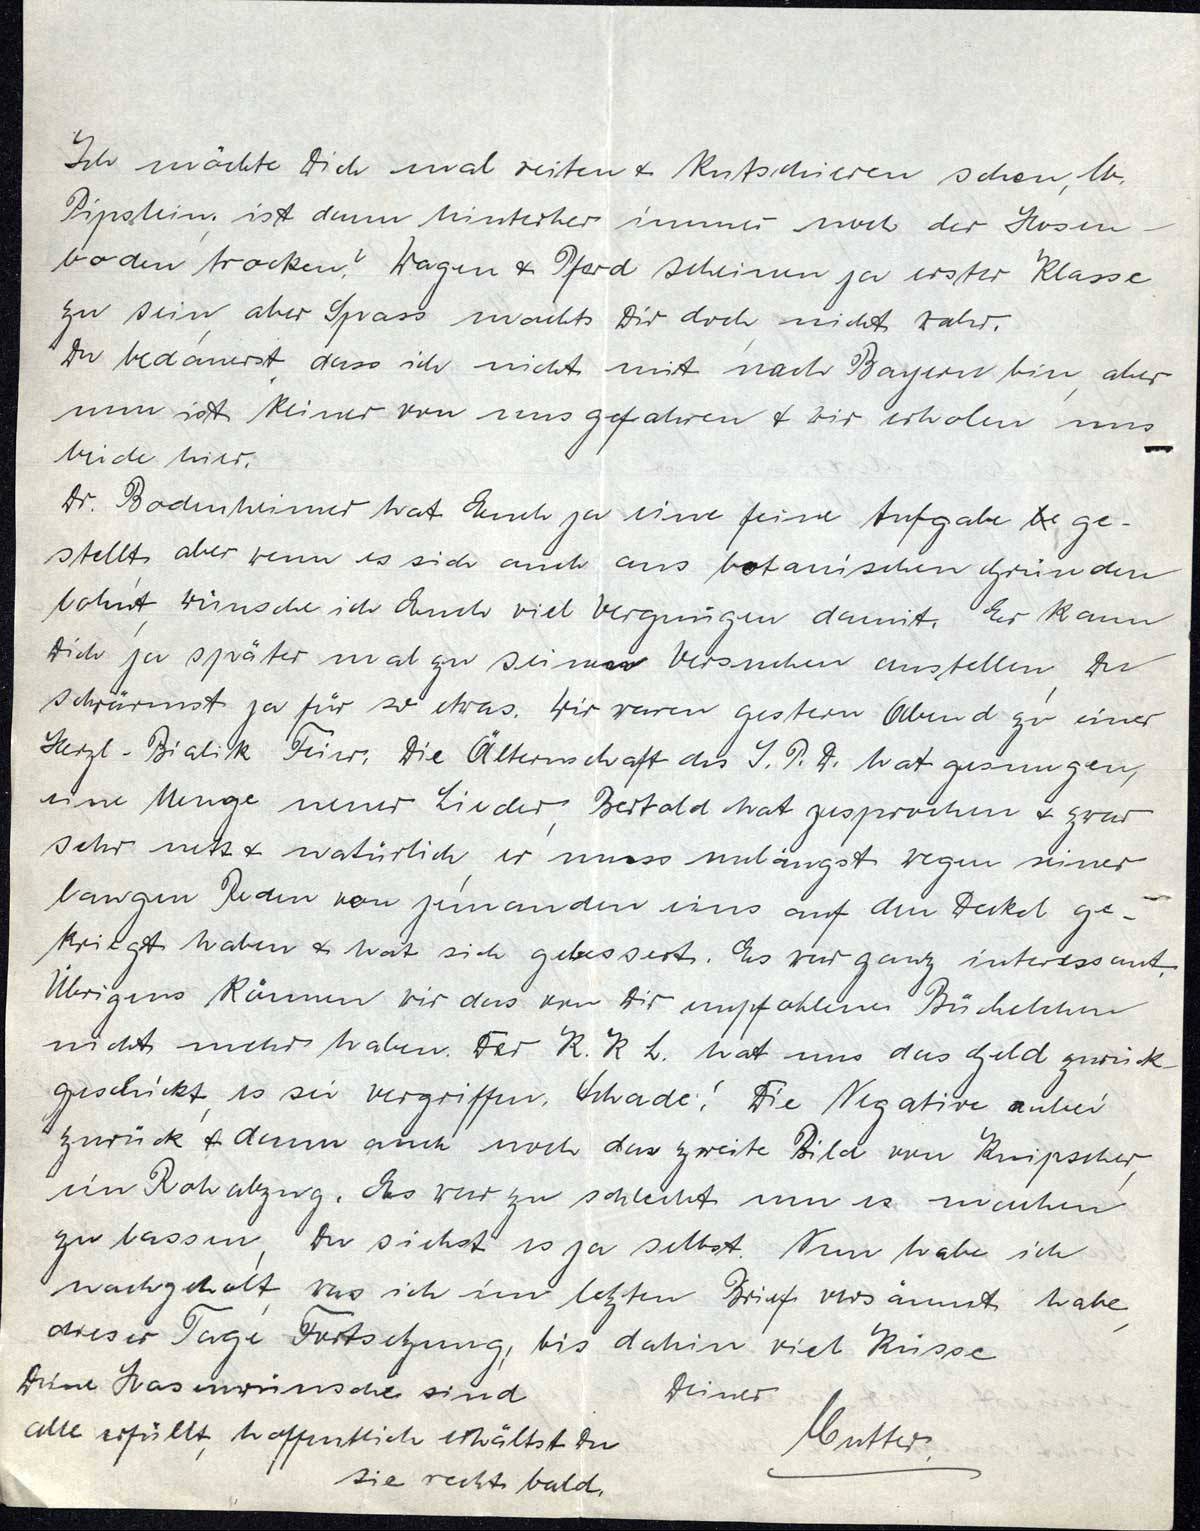 Ich möchte Dich mal reiten & kutschieren sehen, lb.
Pipslein, ist denn hinterher immer noch der Hosen-
boden trocken? Wagen & Pferd scheinen ja erster Klasse
zu sein, aber Spass machts Dir doch, nicht wahr.
Du bedauerst, dass ich nicht mit nach Bayern bin, aber
nun ist keiner von uns gefahren & wir erholen uns
beide hier.
Dr. Bodenheimer hat Euch ja eine feine Aufgabe ge-
stellt, aber wenn es sich auch aus botanischen Gründen
lohnt, wünsche ich Euch viel Vergnügen damit. Er kann
Dich ja später mal zu seinen Versuchen anstellen, Du
schwärmst ja für so etwas. Wir waren gestern Abend zu einer
Herzl-Bialik Feier. Die Älternschaft des I.P.D. hat gesungen,
eine Menge neuer Lieder, Bertold hat gesprochen & zwar
sehr nett & natürlich, er muss unlängst wegen seiner
langen Reden von jemanden eins auf den Deckel ge-
kriegt haben & hat sich gebessert. Es war ganz interessant.
Übrigens können wir das von Dir empfohlene Büchelchen
nicht mehr haben. Der K.K L. hat uns das Geld zurück-
geschickt, es sei vergriffen. Schade! Die Negative anbei
zurück & dann auch noch das zweite Bild von Knipscher,
ein Rohabzug. Es war zu schlecht um es machen
zu lassen, Du siehst es ja selbst. Nun habe ich
nachgeholt, was ich im letzten Brief versäumt habe,
dieser Tage Fortsetzung, bis dahin viel Küsse
Deiner
Mutter.
Deine Hasenwünsche sind
alle erfüllt, hoffentlich erhältst Du
sie recht bald.